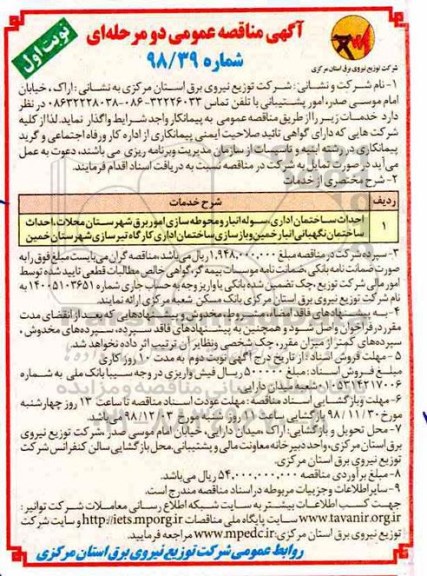 آگهی مناقصه عمومی دو مرحله‌ای
شماره ۹۸/۳۹
نوبت اول
شرکت توزیع نیروی برق استان مرکزی
۱- نام شرکت و نشانی: شرکت توزیع نیروی برق استان مرکزی به نشانی: اراک، خیابان
امام موسی صدر، امور پشتیبانی با تلفن تماس ۳۲۲۲۶۰۳۳-۰۸۶ ۰۸۶۳۲۲۲۸۰۳۸ در نظر
دارد خدمات زیر را از طریق مناقصه عمومی به پیمانکار واجد شرایط واگذار نماید. لذا از کلیه
شرکت هایی که دارای گواهی تائید صلاحیت ایمنی پیمانکاری از اداره کار ورفاه اجتماعی و گرید
پیمانکاری در رشته ابنیه و تاسیسات از سازمان مدیریت وبرنامه ریزی می باشند، دعوت به عمل
می آید در صورت تمایل به شرکت در مناقصه نسبت به دریافت اسناد اقدام فرمایند.
۲- شرح مختصری از خدمات
ردیف شرح خدمات
۱ احداث ساختمان اداری، سوله انبار و محوطه سازی امور برق شهرستان محلات، احداث
ساختمان نگهبانی انبار خمین و بازسازی ساختمان اداری کارگاه تیرسازی شهرستان خمین
۳- سپرده شرکت در مناقصه مبلغ ۱,۹۴۸,۰۰۰,۰۰۰ ریال می باشد، مناقصه گران می بایست مبلغ فوق را به
صورت ضمانت نامه بانکی، ضمانت نامه موسسات بیمه گر، گواهی خالص مطالبات قطعی تایید شده توسط
امور مالی شرکت توزیع، چک تضمین شده بانکی یا واریز وجه به حساب جاری شماره ۱۴۰۰۵۱۰۳۶۵۱ به
نام شرکت توزیع نیروی برق استان مرکزی بانک مسکن شعبه مرکزی ارائه نمایند.
۴- به پیشنهادهای فاقد امضاء، مشروط، مخدوش و پیشنهادهایی که بعد از انقضای مدت
مقرر در فراخوان واصل شود و همچنین به پیشنهادهای فاقد سپرده، سپرده‌های مخدوش،
سپرده‌های کمتر از میزان مقرر، چک شخصی ونظایر آن ترتیب اثر داده نخواهد شد.
۵- مهلت فروش اسناد: از تاریخ درج آگهی نوبت دوم به مدت ۱۰ روز کاری
مبلغ فروش اسناد: مبلغ ۵۰۰۰۰۰ ریال فیش واریزی در وجه سیبا بانک ملی به شماره
۰۱۰۵۳۱۴۲۱۷۰۰۶ شعبه میدان دارایی.
۶- مهلت وبازگشایی اسناد مناقصه: مهلت عودت اسناد مناقصه تا ساعت ۱۳ روز چهارشنبه
مورخ ۹۸/۱۱/۳۰ بازگشایی ساعت ۱۰ روز شنبه مورخ ۹۸/۱۲/۳ می باشد.
۷- محل تحویل و بازگشایی: اراک، میدان دارایی، خیابان امام موسی صدر، شرکت توزیع نیروی
برق استان مرکزی، واحد دبیرخانه معاونت مالی و پشتیبانی، محل بازگشایی سالن کنفرانس شرکت
توزیع نیروی برق استان مرکزی.
۸- مبلغ برآوردی مناقصه ۵۴,۰۰۰,۰۰۰,۰۰۰ ریال می باشد.
۹- سایر اطلاعات و جزییات مربوطه در اسناد مناقصه مندرج است.
جهت کسب اطلاعات بیشتر به سایت شبکه اطلاع رسانی معاملات شرکت توانیر:
www.tavanir.org.ir سایت پایگاه ملی مناقصات http://iets.mporg.ir و سایت شرکت
توزیع نیروی برق استان مرکزی: www.mpedc.ir مراجعه فرمایید.
روابط عمومی شرکت توزیع نیروی برق استان مرکزی